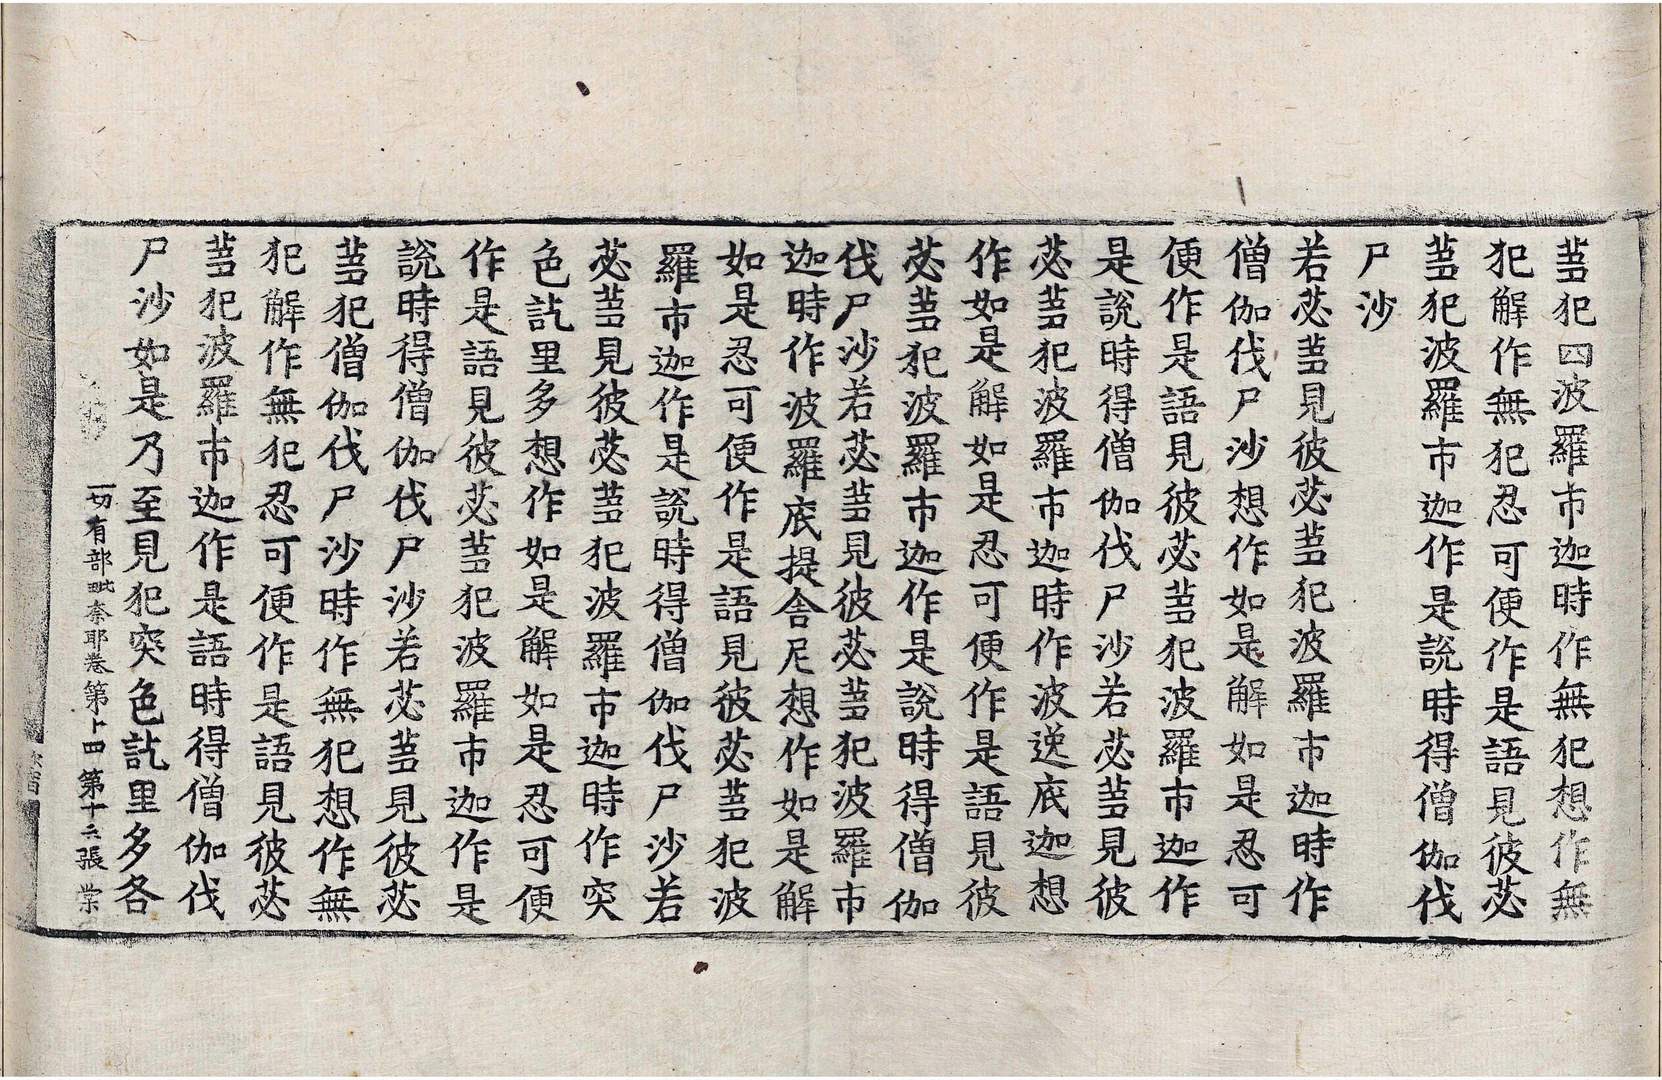 芻犯四波羅市迦時作無犯想作無
犯解作無犯忍可便作是語見彼苾
芻犯波羅市迦作是說時得僧伽伐
尸沙
若苾芻見彼苾芻犯波羅市迦時作
僧伽伐尸沙想作如是解如是忍可
便作是語見彼苾芻犯波羅市迦作
是說時得僧伽伐尸沙若苾芻見彼
苾芻犯波羅市迦時作波逆底迦想
作如是解如是忍可便作是語見彼
苾芻犯波羅市迦作是說時得僧伽
伐尸沙若苾芻見彼苾芻犯波羅市
迦時作波羅底提舍尼想作如是解
如是忍可便作是語見彼苾芻犯波
羅市迦作是說時得僧伽伐尸沙若
苾芻見彼苾芻犯波羅市迦時作突
色訖里多想作如是解如是忍可便
作是語見彼苾芻犯波羅市迦作是
說時得僧伽伐尸沙若苾芻見彼苾
芻犯僧伽伐尸沙時作無犯想作無
犯解作無犯忍可便作是語見彼苾
芻犯波羅市迦作是語時得僧伽伐
尸沙如是乃至見犯突色訖里多各
一切有部毗奈耶卷第十四 第十六張 業